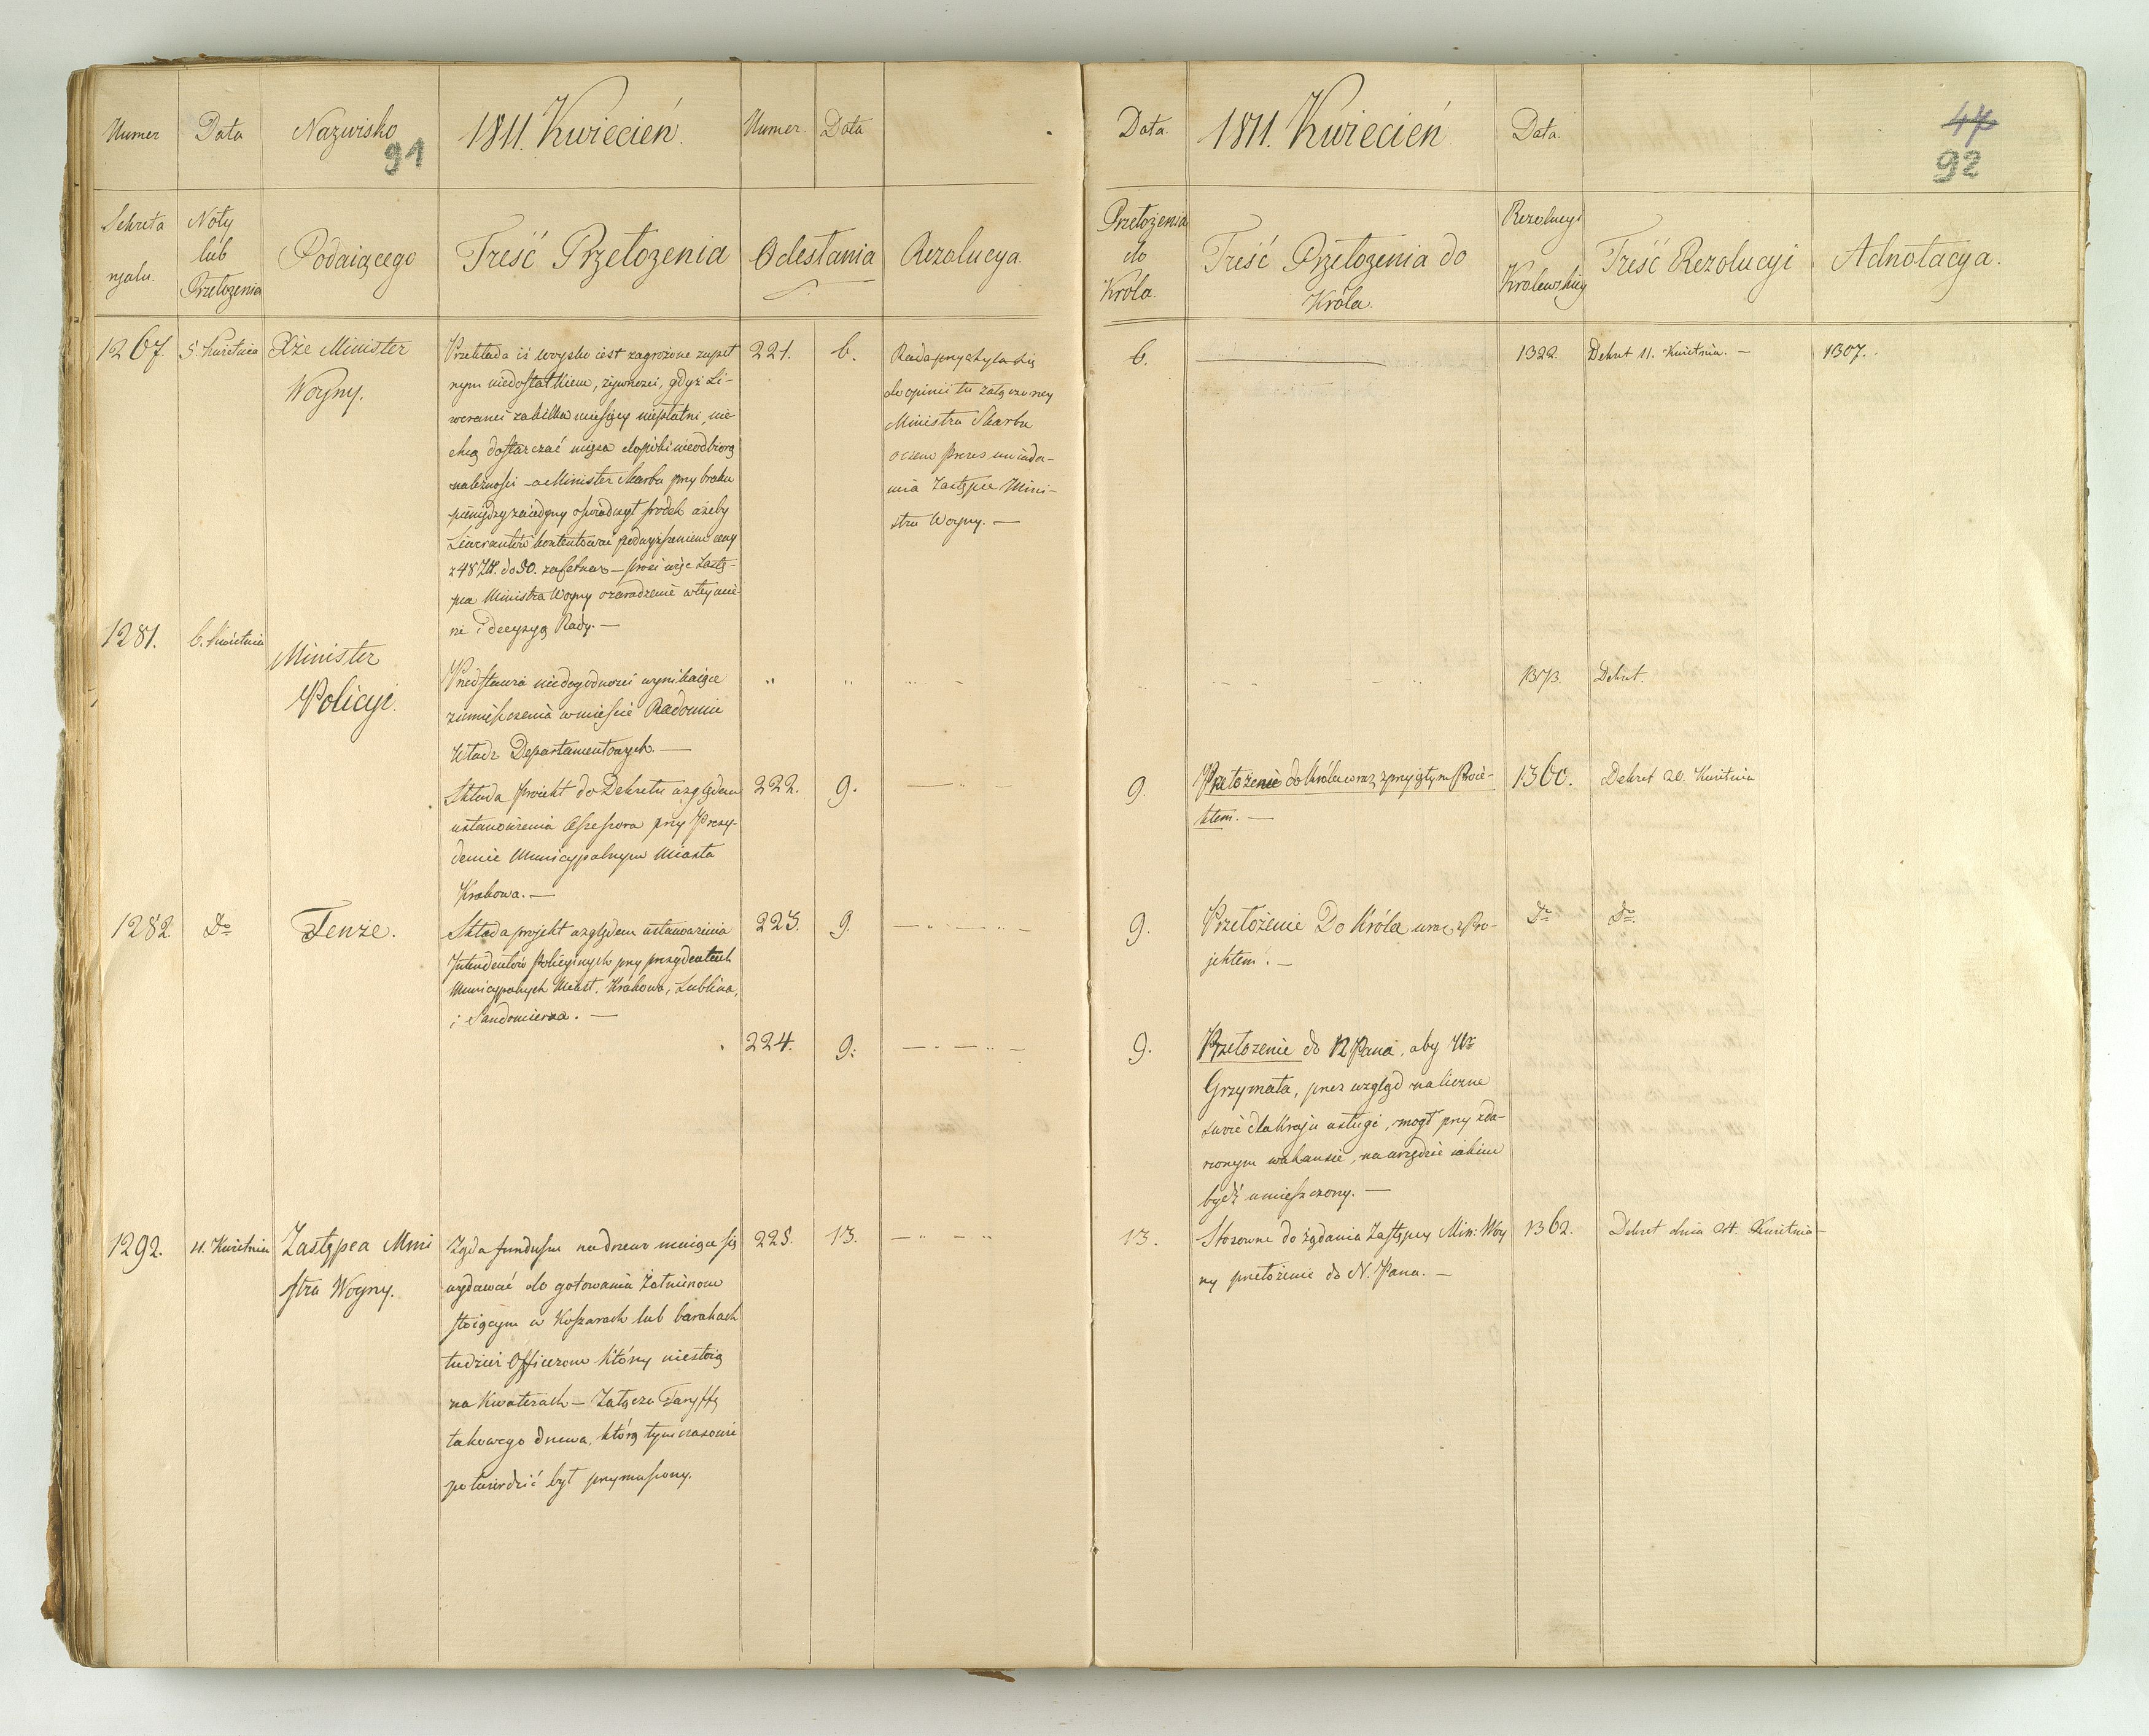 Numer Data Nazwisko 1811. Kwiecień. Numer. Data
91
Sekreta Noty
ryalu. lub Podaiącego Treść Przełożenia Odesłania Rezolucya.
Przełożenia
1267. 5. Kwietnia Xże Minister
Woyny.
Przekłada iż woysko iest zagrożone zupeł
nym niedostatkiem, żywności, gdyż Li-
weranci za kilka miesięcy niepłatni, nie
chcą dostarczać mięsa dopóki nieodbiorą
należności – a Minister Skarbu przy braku
pieniędzy za iedyny oświadczył środek ażeby
Liwerantów kontentować podwyższeniem ceny
z 48 Złt. do 50. za Cetnar – prosi więc Zastę-
pca Ministra Woyny o zaradzenie w tey mie-
rze i decyzyą Rady. —
221. 6.
Rada przychyla się
do opinii tu załączoney
Ministra Skarbu
o czem Prezes uwiado-
mia Zastępce Mini-
stra Woyny. —
1281. 6. Kwietnia
Minister
Policyi.
Przedstawia niedogodności wynikaiące
z umieszczenia w mieście Radomiu
Władz Departamentowych. —
Składa Proiekt do Dekretu względem
ustanowienia Assessora przy Prezy-
dencie Municypalnym Miasta
Krakowa. —
222. 9.
1282. Do Tenże.
Składa projekt względem ustanowienia
Intendentów Policyinych przy prezydentach
Municypalnych Miast. Krakowa, Lublina,
i Sandomierza. —
223. 9.
224. 9.
1292. 11. Kwietnia Zastępca Mini
stra Woyny.
Żąda funduszu na drzewo maiące się
wydawać do gotowania Żołnierzom
stoiącym w Koszarach lub barakach
tudzież Officerom którzy niestoią
na Kwaterach – Załącza Taryffę
takowego drzewa, którą tymczasowie
potwierdzić był przymuszony.
225. 13.
Data. 1811. Kwiecień Data. 47
92
Przełożenia
do
Króla.
Treść Przełożenia do
Króla.
Rezolucyi
Krolewskiey
Treść Rezolucyi Adnotacya.
6. 1322. Dekret 11. Kwietnia. — 1307.
1373 Dekret.
9. Przełożenie do Króla wraz z przyjętym Proie-
ktem. — 1360. Dekret 20. Kwietnia
9. Przełożenie Do Króla wraz z Pro-
jektem. — Do Do
9. Przełożenie do N Pana, aby
Grzymała, przez wzgląd na liczne
dla Kraju usługi, mógł przy zda-
rzonym wakansie, na urzędzie iakim
bydź umieszczony. —
13. Stosowne do żądania Zastępcy Min: Woy
ny przełożenie do N. Pana. — 1362. Dekret dnia 24. Kwietnia